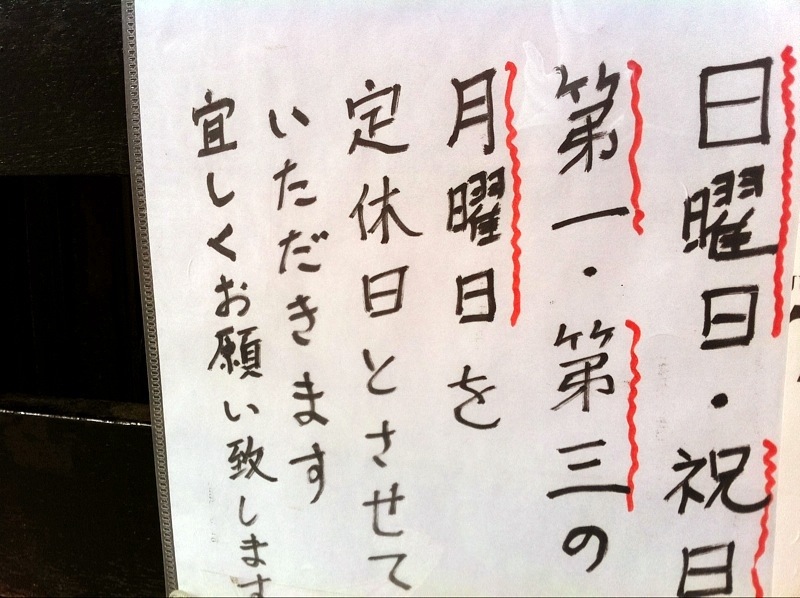 日曜日・祝日
第一・第三の
月曜日を
定休日とさせて
いただきます
宜しくお願い致します